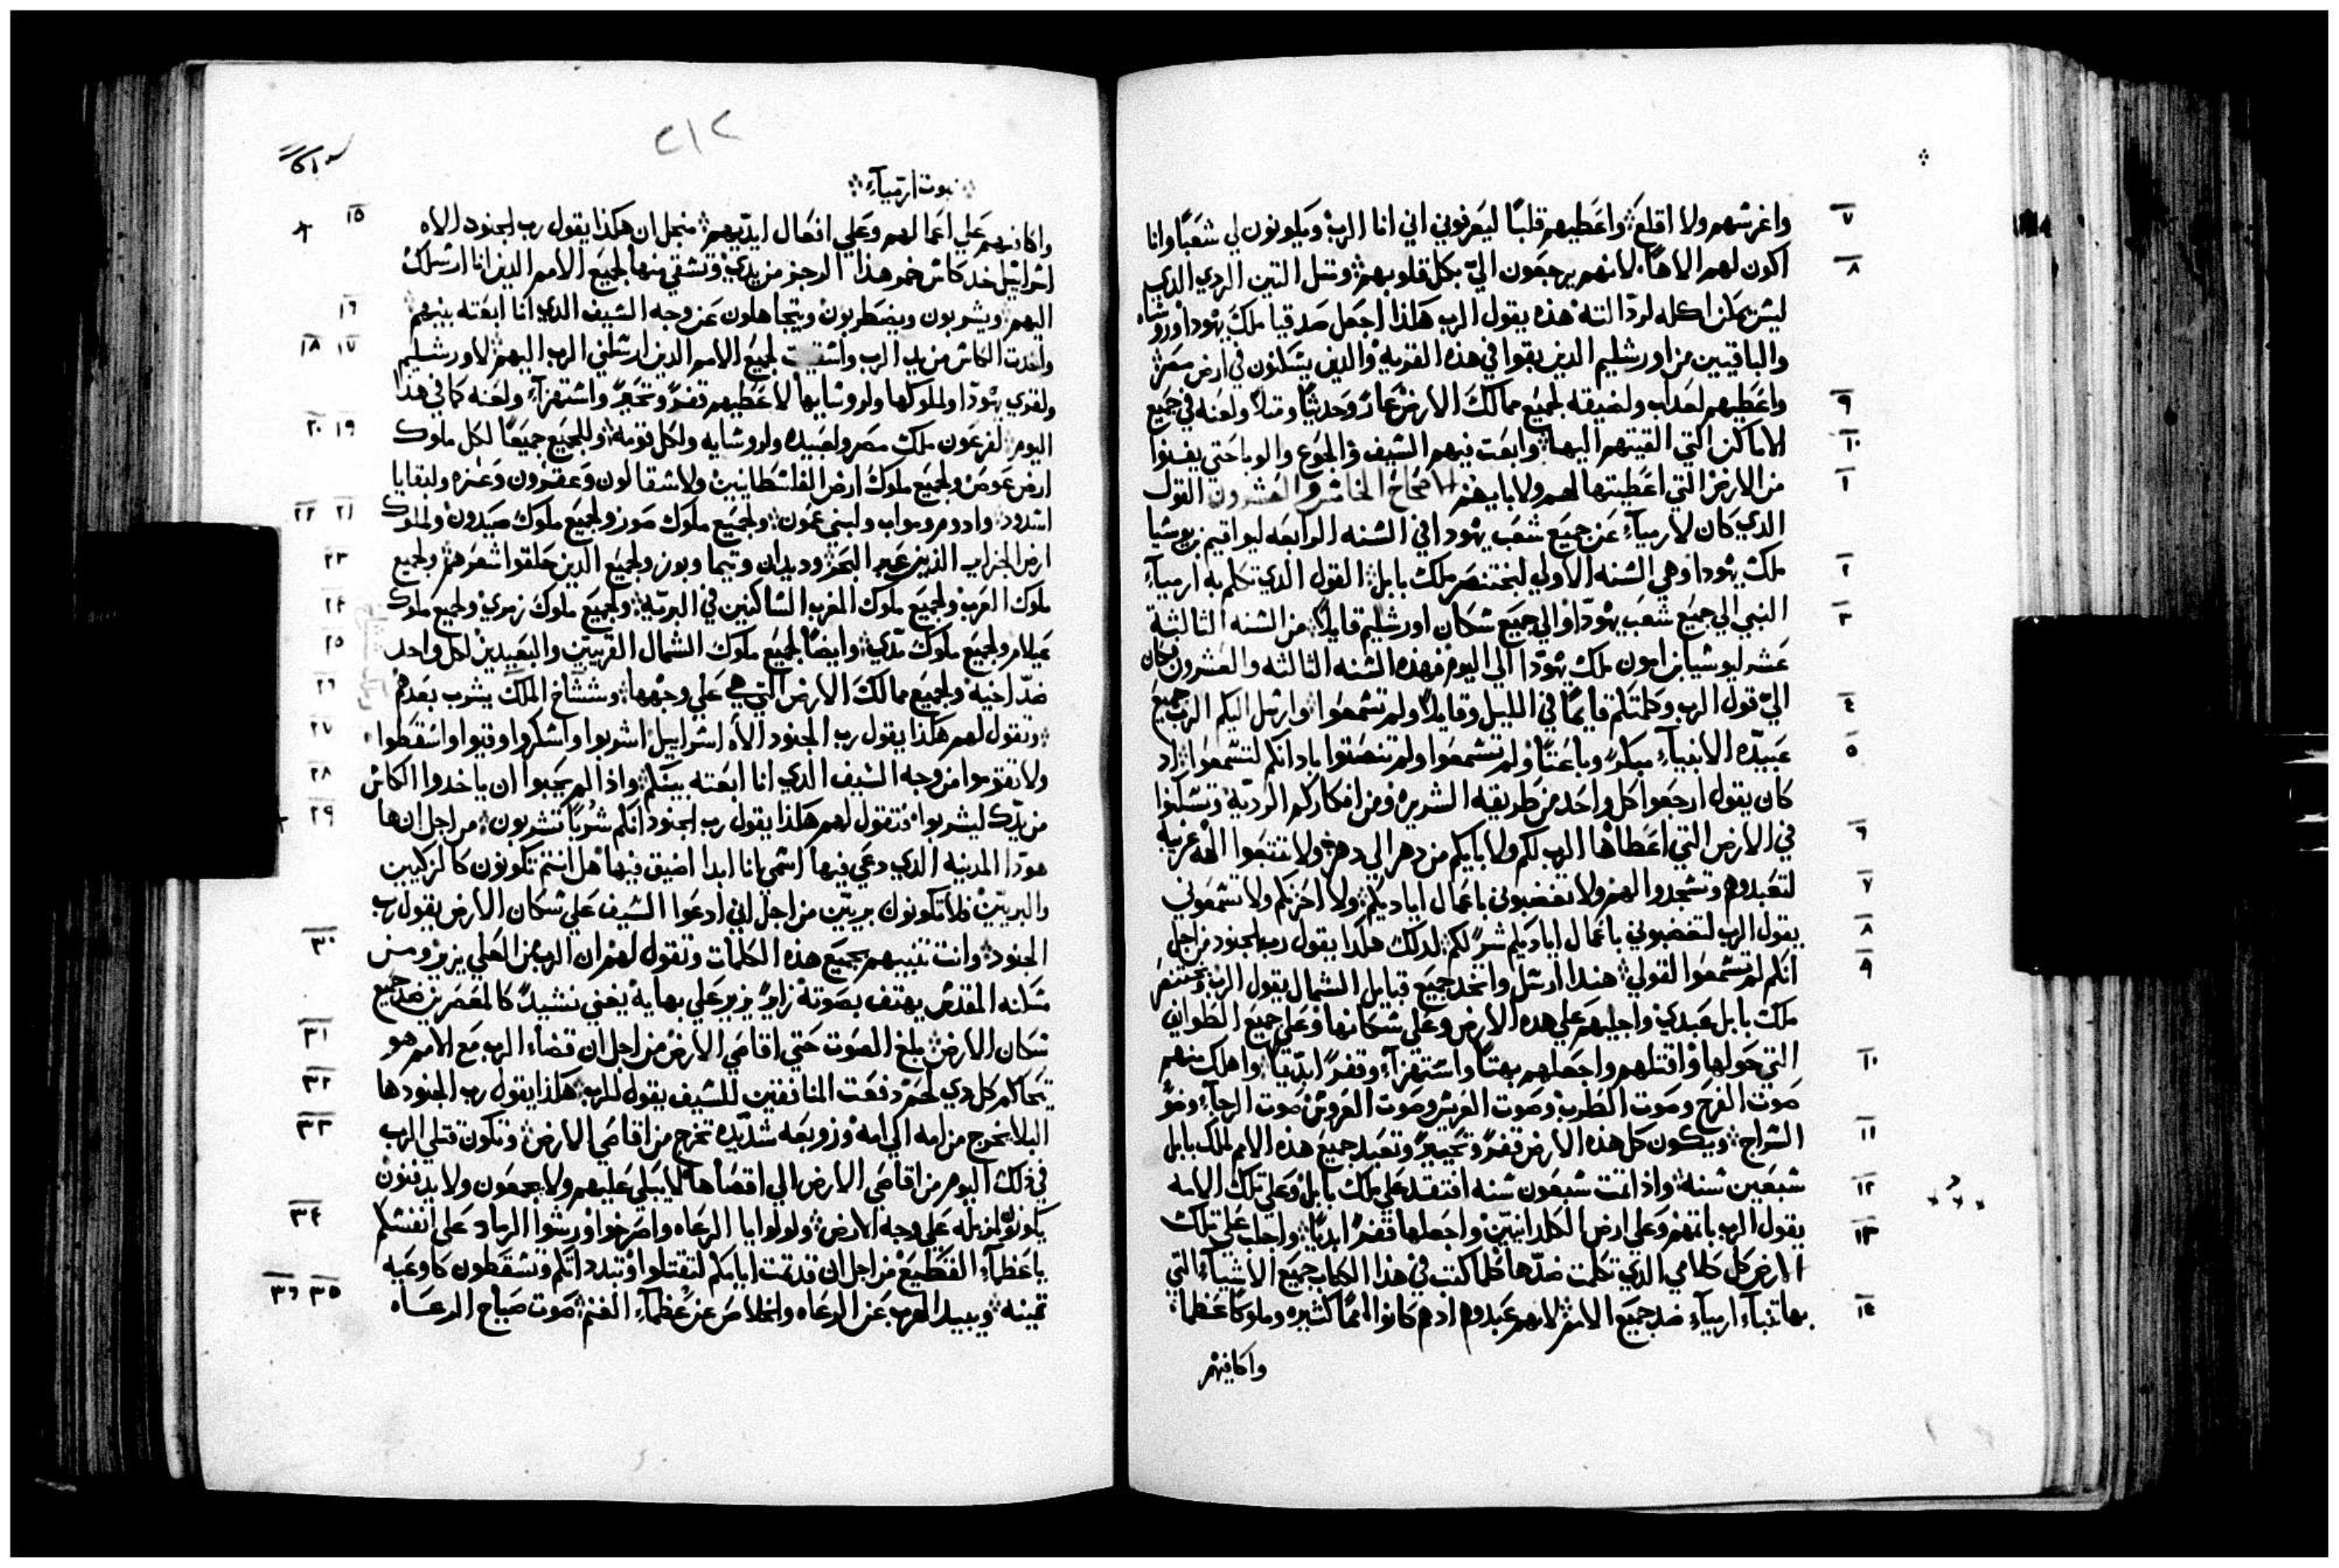 واغرسهم ولا اقلع واعطيهم قلبًا ليعرفوني اني انا الرب ويكونون لي شعبًا وانا
اكون لهم الاهًا لانهم يرجعون اليّ بكل قلوبهم ومثل التين الردي الذي
ليس يمكن اكله لردالته هذه يقول الرب هكذا اجعل صدقيا ملك يهودا وروشاه
والباقيين من اورشليم الذين بقوا في هذه القريه والذين يسكنون في ارض مصر
واعطيهم لعذاب ولضيقه لجميع ممالك الارض عارً وحديثًا ومثلاً ولعنه في جميع
الاماكن التي القيتهم اليها وابعت فيهم السيف والجوع والوبا حتي يفنوا
من الارض التي اعطيتها لهم ولابايهم الاصحاح الخامس والعشرون القول
الذي كان لارمياء عن جميع شعب يهودا في السنه الرابعه ليواقيم بن يوشيا
ملك يهودا وهي السنه الاولي لبختنصر ملك بابل القول الذي تكلم به ارمياء
النبي الي جميع شعب يهودا والي جميع سكان اورشليم قايلاً من السنه الثالثة
عشر ليوشيا بن امون ملك يهودا الي اليوم فهذه السنه الثالثه والعشرون كان
اليّ قول الرب وكلمتكم قايمًا في الليل وقايلاً ولم تسمعوا وارسل اليكم الرب جميع
عبيده الانبياء مبكرً وباعثًا ولم تسمعوا ولم تنصتوا بادانكم لتسمعوا اد
كان يقول ارجعوا كل واحد من طريقه الشريره ومن افكاركم الرديه وتسكنوا
في الارض التي اعطاها الرب لكم ولابايكم من دهر الي دهر ولا تتبعوا الهه غريبه
لتعبدوهم وتسجدوا لهم ولا تغضبوني باعمال اياديكم ولا احزنكم ولا تسمعوني
يقول الرب لتغضبوني باعمال اياديكم شرً لكم لدلك هكذا يقول رب الجنود من اجل
انكم لم تسمعوا لقولي هندا ارسل واتخد جميع قبايل الشمال يقول الرب وبختنصر
ملك بابل عبدي واجليهم علي هده الارض وعلي سكانها وعلي جميع الطوايف
التي حولها واقتلهم واجعلهم بهتًا واستهزاء وقفرً ابديًا واهلك منهم
صوت الفرح وصوت الطرب وصوت العريس وصوت العروس صوت الرحاء وضو
السراج ويكون كل هذه الارض قفرً وتحييرً وتعبد جميع هذه الامم لملك بابل
سبعين سنه واذا تمت سبعون سنه افتقد علي ملك بابل وعلي تلك الامه
يقول الرب باثمهم وعلي ارض الكلدانيين واجعلها قفرً ابديًا واجلب علي تلك
الارض كل كلامي الذي تكلمت ضدها كلما كتب في هذا الكتاب جميع الاشياء التي
بها تنباء ارمياء ضد جميع الامم لانهم عبدوهم ادهم كانوا اممًا كثيره وملوكًا عظما
واكافيهم
٢١٢
نبوت ارمياء
واكافيهم علي اعمالهم وعلي افعال ايديهم منجل ان هكذا يقول رب الجنود الاه
اسراييل خد كاس خمر هذا الرجز من يدي وتسقي منها لجميع الامم الدين انا ارسلك
اليهم ويشربون ويضطربون ويتجاهلون عن وجه السيف الدي انا ابعته بينهم
واخدت الكاس من يد الرب واسقيت لجميع الامم الدين ارسلني الرب اليهم لاورشليم
ولقري يهودا ولملوكها ولروشايها لاعطيهم قفرً وتحيرً واستهزاء ولعنه كما في هذا
اليوم لفرعون ملك مصر ولعبيده ولروشايه ولكل قومه وللجميع جميعًا لكل ملوك
ارض عوص ولجميع ملوك ارض الفلسطانيين ولاشقالون وعقرون وغزه ولبقايا
اشدود وادوم ومواب ولبني عمون ولجميع ملوك صور ولجميع ملوك صيدون ولملوك
ارض الجزاير الذين عبر البحر وديدان وتيما وبوز ولجميع الذين حلقوا شعرهم ولجميع
ملوك العرب ولجميع ملوك المغرب الساكنين في البريه ولجميع ملوك زمري ولجميع ملوك
عيلام ولجميع ملوك مدي وايضًا لجميع ملوك الشمال القريبين والبعيدين لكل واحد
ضد اخيه ولجميع ممالك الارض التي هي علي وجهها وششاخ الملك يشرب بعدهم
وتقول لهم هكذا يقول رب الجنود الاه اسراييل اشربوا واسكروا وقيوا واسقطوا
ولا تقوموا من وجه السيف الدي انا ابعته بينكم واذا لم يحبوا ان ياخدوا الكاس
من يدك ليشربوا فتقول لهم هكذا يقول رب الجنود انكم شربًا تشربون من اجل ان ها
هودا المدينه الدي دعي فيها اسمي انا ابدا اضيق فيها هل انتم تكونون كالزكيين
والبريين فلا تكونون بريين من اجل اني ادعوا السيف علي سكان الارض يقول رب
الجنود وانت تنبيهم بجميع هذه الكلمات وتقول لهم ان الرب من العلي يزير ومن
مسكنه المقدس يهتف بصوته زايرً يزير علي بهايه يغني نشيدً كالمعصرين ضد جميع
سكان الارض بلغ الصوت حتي اقاصي الارض من اجل ان قضاء الرب مع الامم هو
يتحاكم كل دي لحم دفعت المنافقين للسيف يقول الرب هكذا يقول رب الجنود ها
البلا يخرج من امه الي امه وزوبعه شديده تخرج من اقاصي الارض وتكون قتلي الرب
في ذلك اليوم من اقاصي الارض الي اقصاها لا يبكي عليهم ولا يجمعون ولا يدفنون
يكونون لمزبله علي وجه الارض ولولوا يا الرعاه واصرخوا ورشوا الرماد علي انفسكم
يا عظماء القطيع من اجل ان قد تمت ايامكم لتقتلوا وتبددانكم وتسقطون كاوعيه
ثمينه ويبيد الهرب عن الرعاه والخلاص عن عظماء الغنم صوت صياح الرعاه